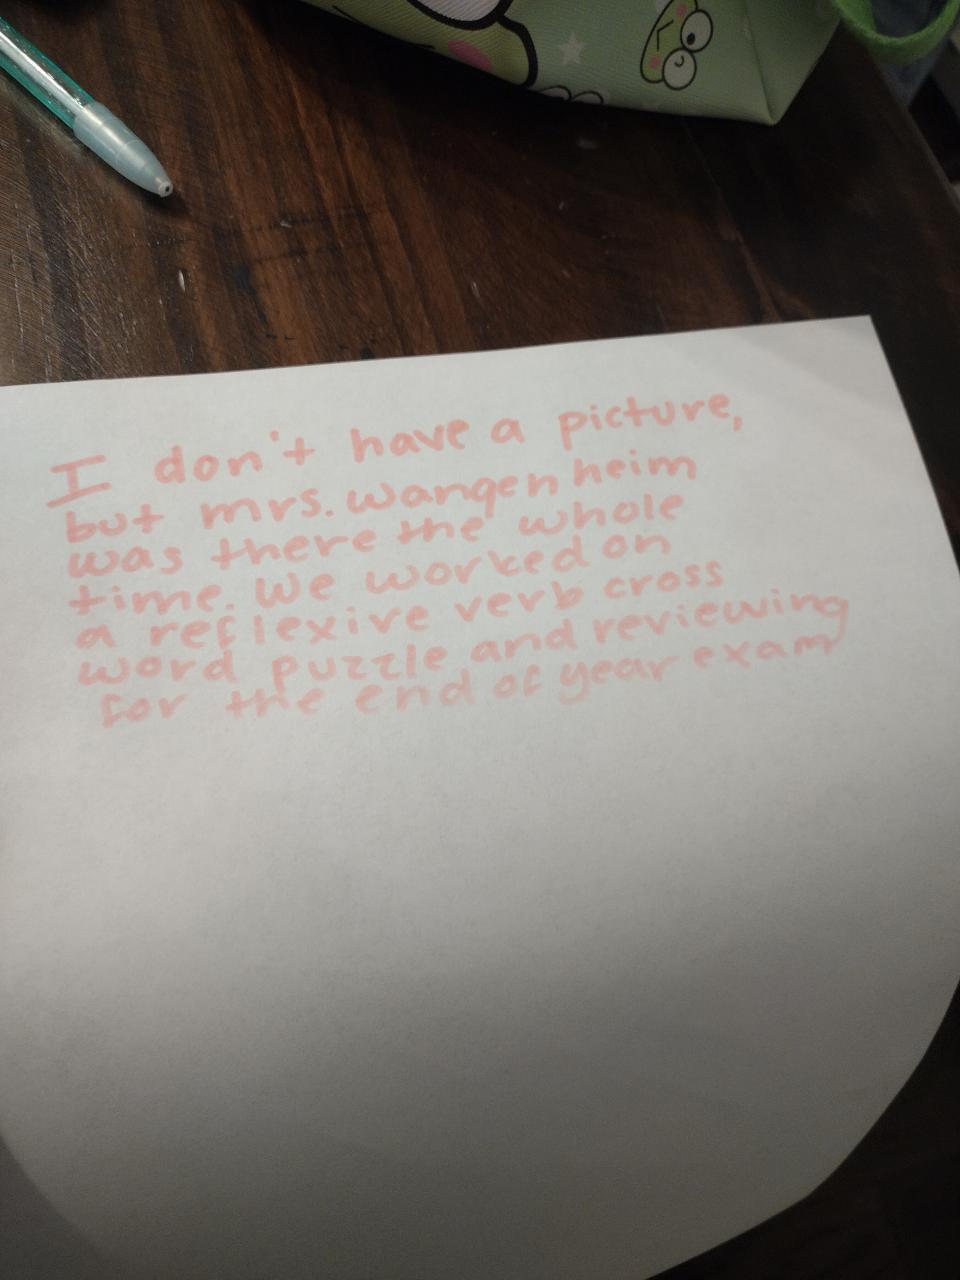 I don't have a picture,
but mrs. wangenheim
was there the whole
time. We worked on
a reflexive verb cross
word puzzle and reviewing
for the end of year exam